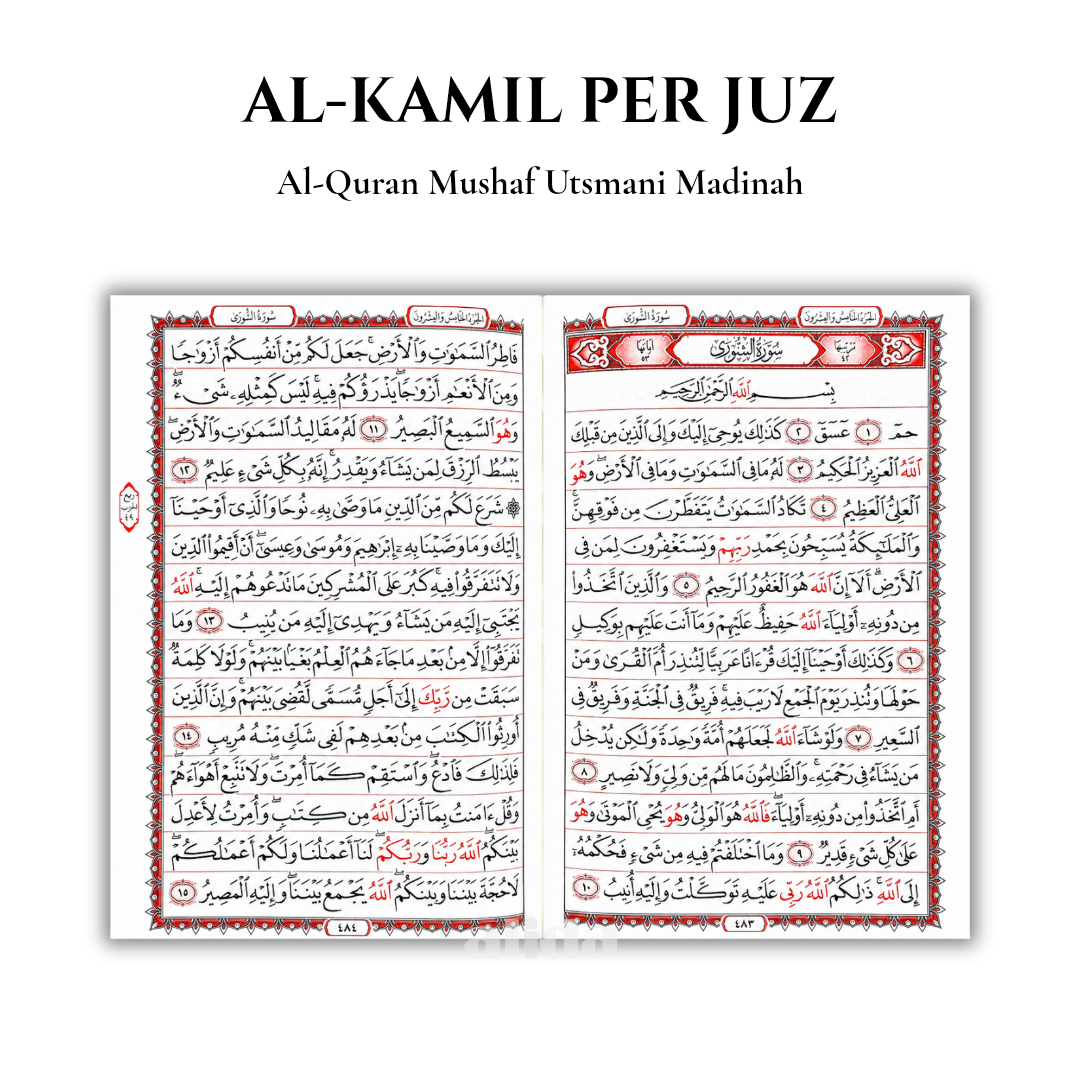 AL-KAMIL PER JUZ
Al-Quran Mushaf Utsmani Madinah
الجزء الخامس والعشرون
سورة الشورى
ترتيبها ٤٢
سورة الشورى
آياتها ٥٣
بِسْمِ اللَّهِ الرَّحْمَٰنِ الرَّحِيمِ
حمٓ ١ عٓسٓقٓ ٢ كَذَٰلِكَ يُوحِيٓ إِلَيْكَ وَإِلَى ٱلَّذِينَ مِن قَبْلِكَ
ٱللَّهُ ٱلْعَزِيزُ ٱلْحَكِيمُ ٣ لَهُۥ مَا فِى ٱلسَّمَٰوَٰتِ وَمَا فِى ٱلْأَرْضِ وَهُوَ
ٱلْعَلِىُّ ٱلْعَظِيمُ ٤ تَكَادُ ٱلسَّمَٰوَٰتُ يَتَفَطَّرْنَ مِن فَوْقِهِنَّ
وَٱلْمَلَٰٓئِكَةُ يُسَبِّحُونَ بِحَمْدِ رَبِّهِمْ وَيَسْتَغْفِرُونَ لِمَن فِى
ٱلْأَرْضِ أَلَآ إِنَّ ٱللَّهَ هُوَ ٱلْغَفُورُ ٱلرَّحِيمُ ٥ وَٱلَّذِينَ ٱتَّخَذُوا۟
مِن دُونِهِۦٓ أَوْلِيَآءَ ٱللَّهُ حَفِيظٌ عَلَيْهِمْ وَمَآ أَنتَ عَلَيْهِم بِوَكِيلٍ
٦ وَكَذَٰلِكَ أَوْحَيْنَآ إِلَيْكَ قُرْءَانًا عَرَبِيًّا لِّتُنذِرَ أُمَّ ٱلْقُرَىٰ وَمَنْ
حَوْلَهَا وَتُنذِرَ يَوْمَ ٱلْجَمْعِ لَا رَيْبَ فِيهِ فَرِيقٌ فِى ٱلْجَنَّةِ وَفَرِيقٌ فِى
ٱلسَّعِيرِ ٧ وَلَوْ شَآءَ ٱللَّهُ لَجَعَلَهُمْ أُمَّةً وَٰحِدَةً وَلَٰكِن يُدْخِلُ
مَن يَشَآءُ فِى رَحْمَتِهِۦ وَٱلظَّٰلِمُونَ مَا لَهُم مِّن وَلِىٍّ وَلَا نَصِيرٍ ٨
أَمِ ٱتَّخَذُوا۟ مِن دُونِهِۦٓ أَوْلِيَآءَ فَٱللَّهُ هُوَ ٱلْوَلِىُّ وَهُوَ يُحْىِ ٱلْمَوْتَىٰ وَهُوَ
عَلَىٰ كُلِّ شَىْءٍ قَدِيرٌ ٩ وَمَا ٱخْتَلَفْتُمْ فِيهِ مِن شَىْءٍ فَحُكْمُهُۥٓ
إِلَى ٱللَّهِ ذَٰلِكُمُ ٱللَّهُ رَبِّى عَلَيْهِ تَوَكَّلْتُ وَإِلَيْهِ أُنِيبُ ١٠
٤٨٣
الجزء الخامس والعشرون
سورة الشورى
فَاطِرُ ٱلسَّمَٰوَٰتِ وَٱلْأَرْضِ جَعَلَ لَكُم مِّنْ أَنفُسِكُمْ أَزْوَٰجًا
وَمِنَ ٱلْأَنْعَٰمِ أَزْوَٰجًا يَذْرَؤُكُمْ فِيهِ لَيْسَ كَمِثْلِهِۦ شَىْءٌ
وَهُوَ ٱلسَّمِيعُ ٱلْبَصِيرُ ١١ لَهُۥ مَقَالِيدُ ٱلسَّمَٰوَٰتِ وَٱلْأَرْضِ
يَبْسُطُ ٱلرِّزْقَ لِمَن يَشَآءُ وَيَقْدِرُ إِنَّهُۥ بِكُلِّ شَىْءٍ عَلِيمٌ ١٢
۞ شَرَعَ لَكُم مِّنَ ٱلدِّينِ مَا وَصَّىٰ بِهِۦ نُوحًا وَٱلَّذِىٓ أَوْحَيْنَآ
إِلَيْكَ وَمَا وَصَّيْنَا بِهِۦٓ إِبْرَٰهِيمَ وَمُوسَىٰ وَعِيسَىٰٓ أَنْ أَقِيمُوا۟ ٱلدِّينَ
وَلَا تَتَفَرَّقُوا۟ فِيهِ كَبُرَ عَلَى ٱلْمُشْرِكِينَ مَا تَدْعُوهُمْ إِلَيْهِ ٱللَّهُ
يَجْتَبِىٓ إِلَيْهِ مَن يَشَآءُ وَيَهْدِىٓ إِلَيْهِ مَن يُنِيبُ ١٣ وَمَا
تَفَرَّقُوٓا۟ إِلَّا مِنۢ بَعْدِ مَا جَآءَهُمُ ٱلْعِلْمُ بَغْيًۢا بَيْنَهُمْ وَلَوْلَا كَلِمَةٌ
سَبَقَتْ مِن رَّبِّكَ إِلَىٰٓ أَجَلٍ مُّسَمًّى لَّقُضِىَ بَيْنَهُمْ وَإِنَّ ٱلَّذِينَ
أُورِثُوا۟ ٱلْكِتَٰبَ مِنۢ بَعْدِهِمْ لَفِى شَكٍّ مِّنْهُ مُرِيبٍ ١٤
فَلِذَٰلِكَ فَٱدْعُ وَٱسْتَقِمْ كَمَآ أُمِرْتَ وَلَا تَتَّبِعْ أَهْوَآءَهُمْ
وَقُلْ ءَامَنتُ بِمَآ أَنزَلَ ٱللَّهُ مِن كِتَٰبٍ وَأُمِرْتُ لِأَعْدِلَ
بَيْنَكُمُ ٱللَّهُ رَبُّنَا وَرَبُّكُمْ لَنَآ أَعْمَٰلُنَا وَلَكُمْ أَعْمَٰلُكُمْ
لَا حُجَّةَ بَيْنَنَا وَبَيْنَكُمُ ٱللَّهُ يَجْمَعُ بَيْنَنَا وَإِلَيْهِ ٱلْمَصِيرُ ١٥
ربع
الحزب
٤٩
٤٨٤